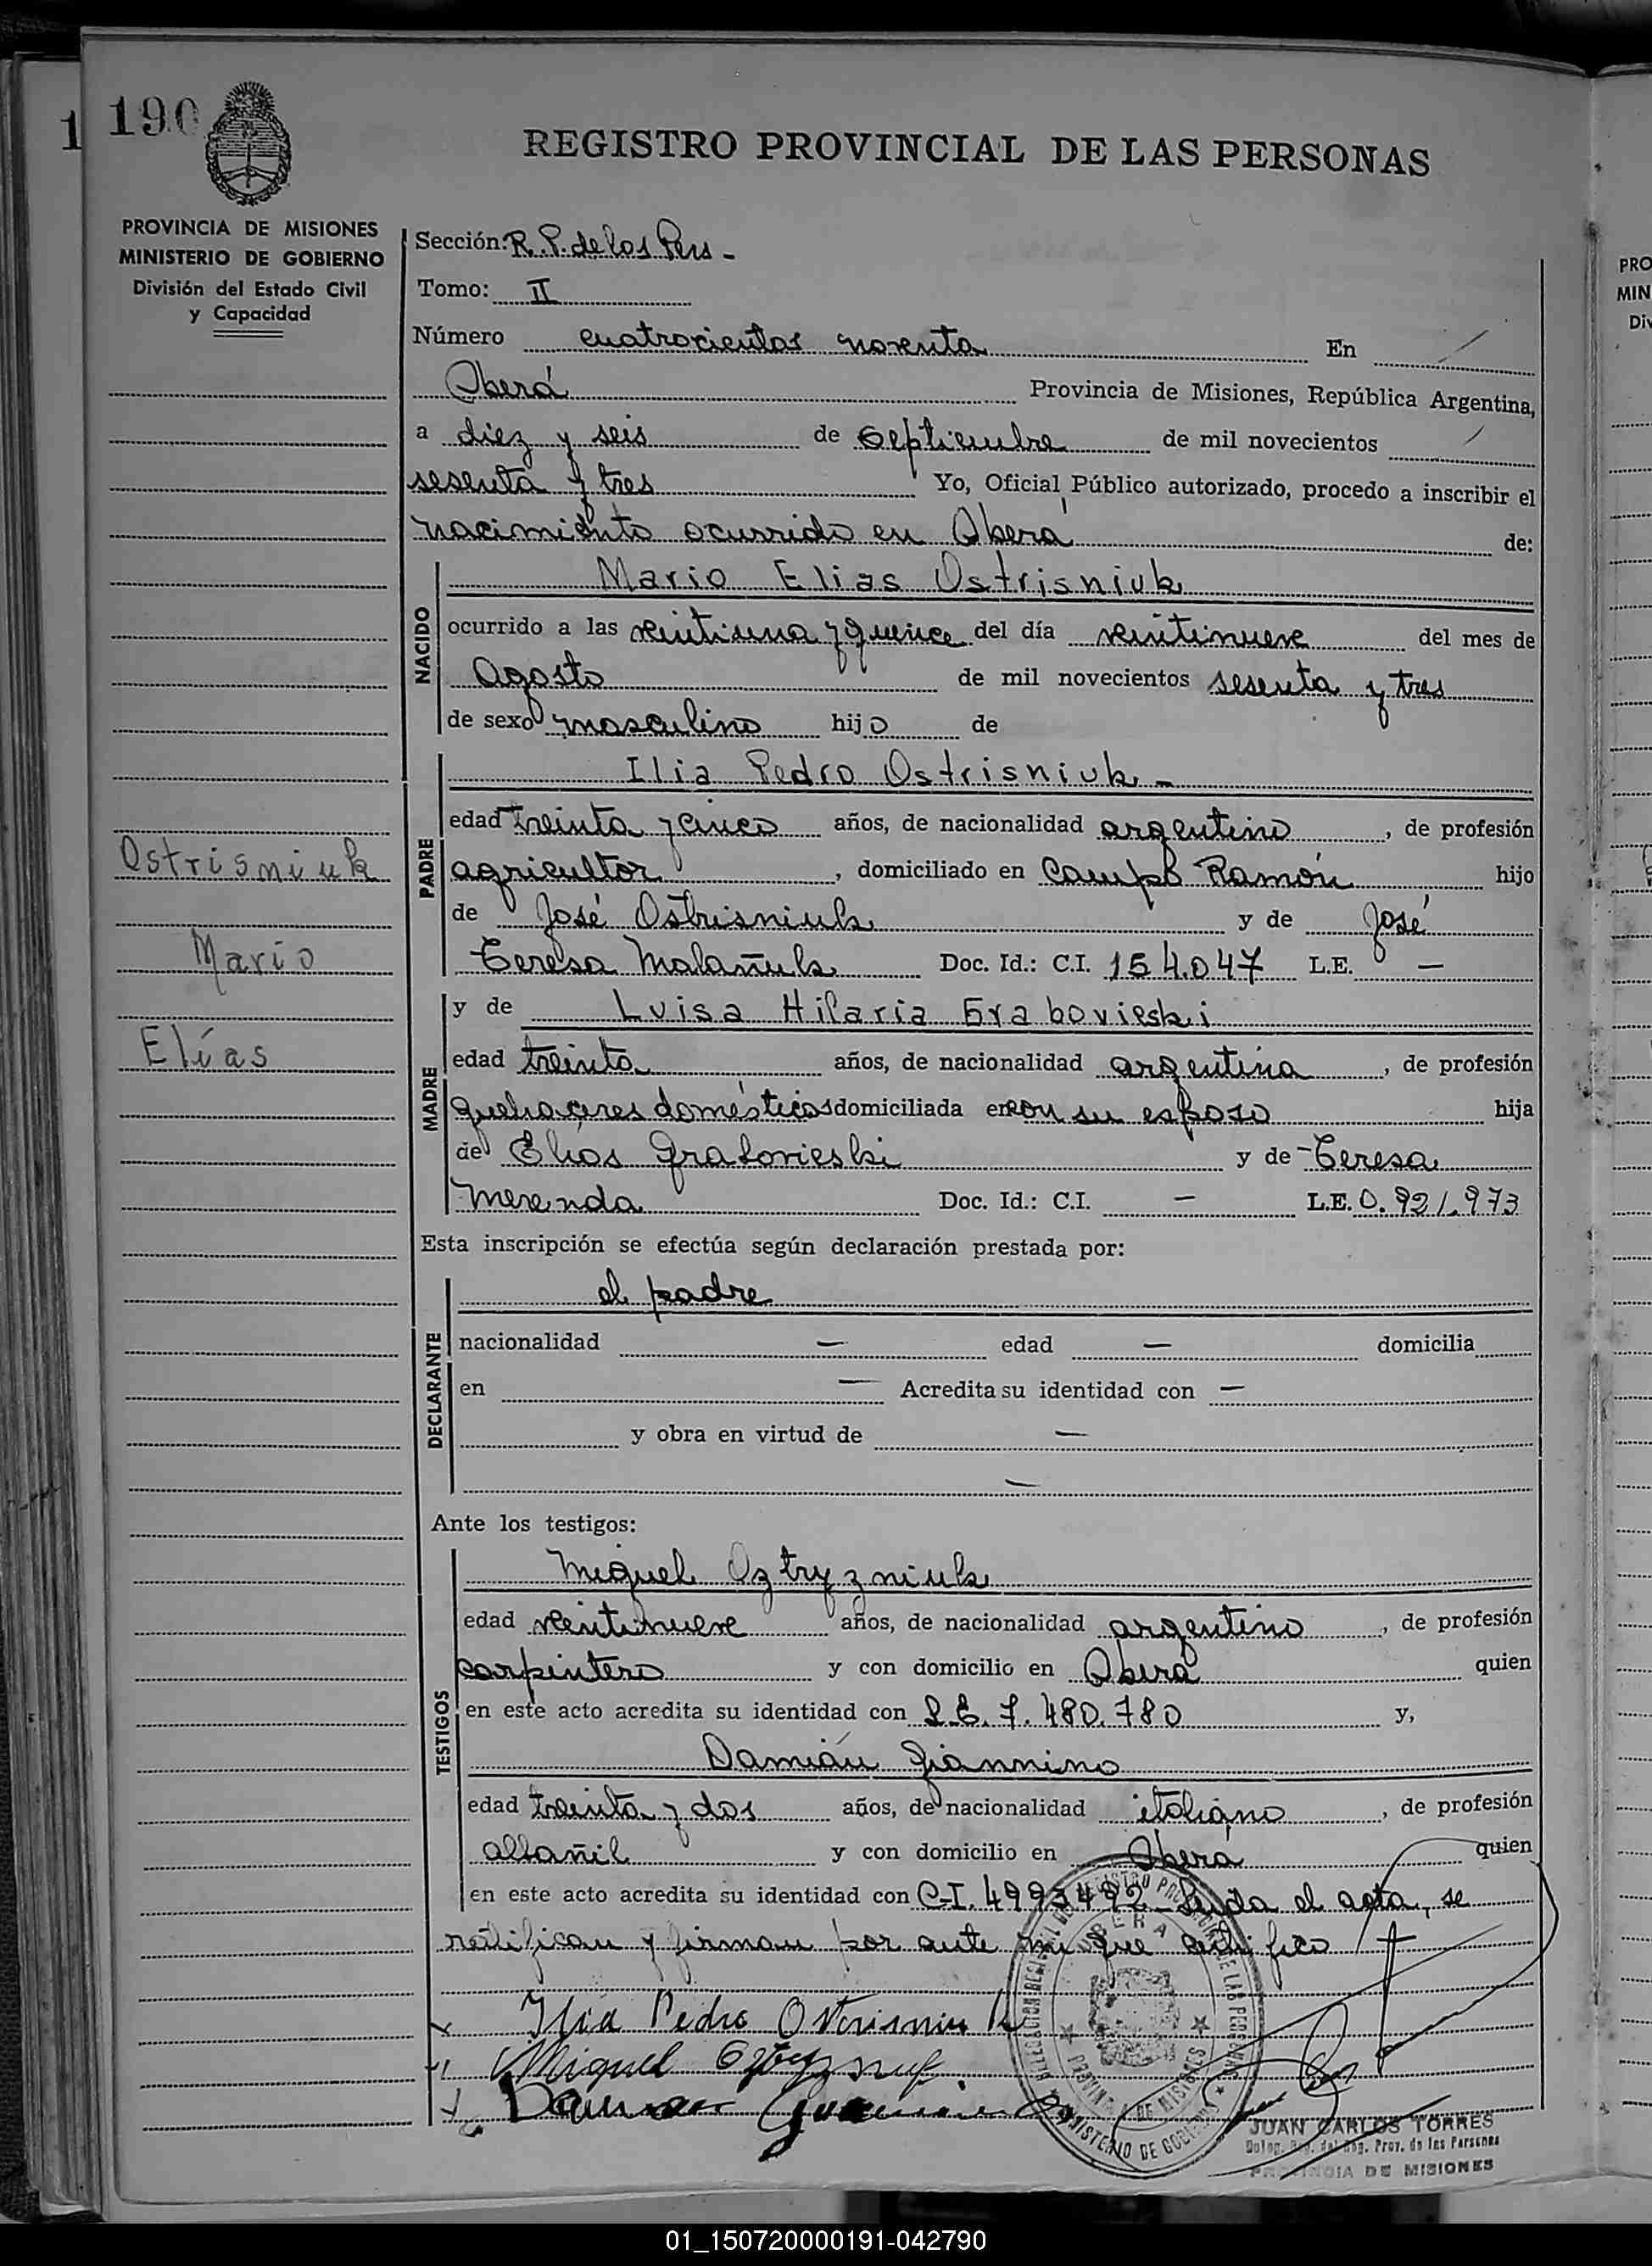 1
190
REGISTRO PROVINCIAL DE LAS PERSONAS
PROVINCIA DE MISIONES
MINISTERIO DE GOBIERNO
División del Estado Civil
y Capacidad
Sección: R. P. de las Pers -
Tomo: II
Número cuatrocientos noventa En /
Oberá Provincia de Misiones, República Argentina,
a diez y seis de Septiembre de mil novecientos /
sesenta y tres Yo, Oficial Público autorizado, procedo a inscribir el
nacimiento ocurrido en Oberá de:
NACIDO
Mario Elias Ostrisniuk
ocurrido a las veintiuna y quince del día veintinueve del mes de
Agosto de mil novecientos sesenta y tres
de sexo masculino hijo de
PADRE
Ilia Pedro Ostrisniuk -
edad treinta y cinco años, de nacionalidad argentino, de profesión
agricultor, domiciliado en Campo Ramón hijo
de José Ostrisniuk y de José
Teresa Malañuk Doc. Id.: C.I. 154.047 L.E. —
Ostrisniuk
Mario
Elías
MADRE
y de Luisa Hilaria Grabovieski
edad treinta años, de nacionalidad argentina, de profesión
quehaceres domésticos domiciliada en con su esposo hija
de Elías Grabovieski y de Teresa
Merenda Doc. Id.: C.I. — L.E. 0.921.973
Esta inscripción se efectúa según declaración prestada por:
DECLARANTE
el padre
nacionalidad — edad — domicilia
en — Acredita su identidad con —
y obra en virtud de —
—
Ante los testigos:
TESTIGOS
Miguel Oztryzniuk
edad veintinueve años, de nacionalidad argentino, de profesión
carpintero y con domicilio en Oberá quien
en este acto acredita su identidad con L.E. 7.480.780 y,
Damián Giannino
edad treinta y dos años, de nacionalidad italiano, de profesión
albañil y con domicilio en Oberá quien
en este acto acredita su identidad con C.I. 4993492 - Leída el acta, se
ratifican y firman por ante mi que certifico
Ilia Pedro Ostrisniuk
Miguel
OBERA
PROVINCIA DE MISIONES
MINISTERIO DE GOBIERNO
JUAN CARLOS TORRES
PROVINCIA DE MISIONES
PRO
MIN
Div
01_150720000191-042790